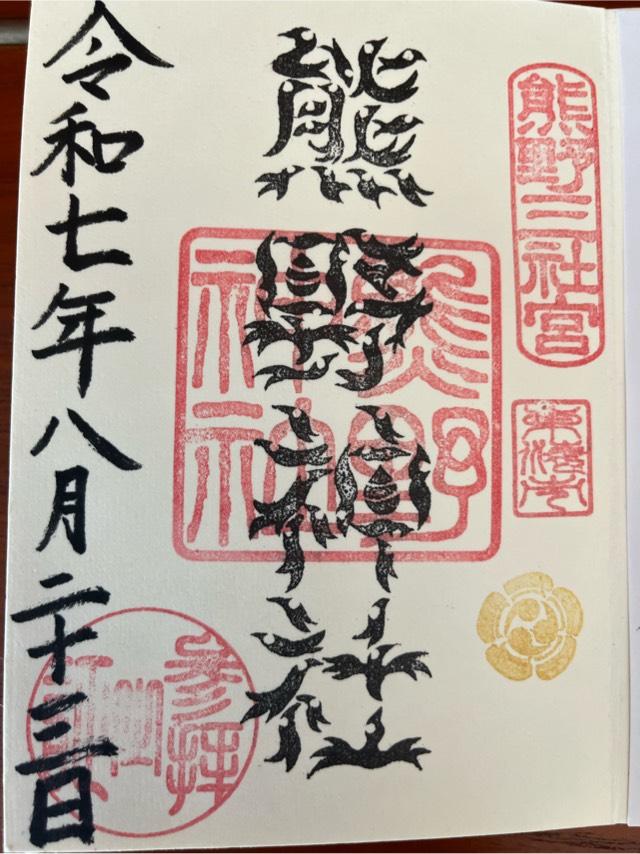 熊野三社宮
熊野神社
熊野神社
参拝
令和七年八月二十三日